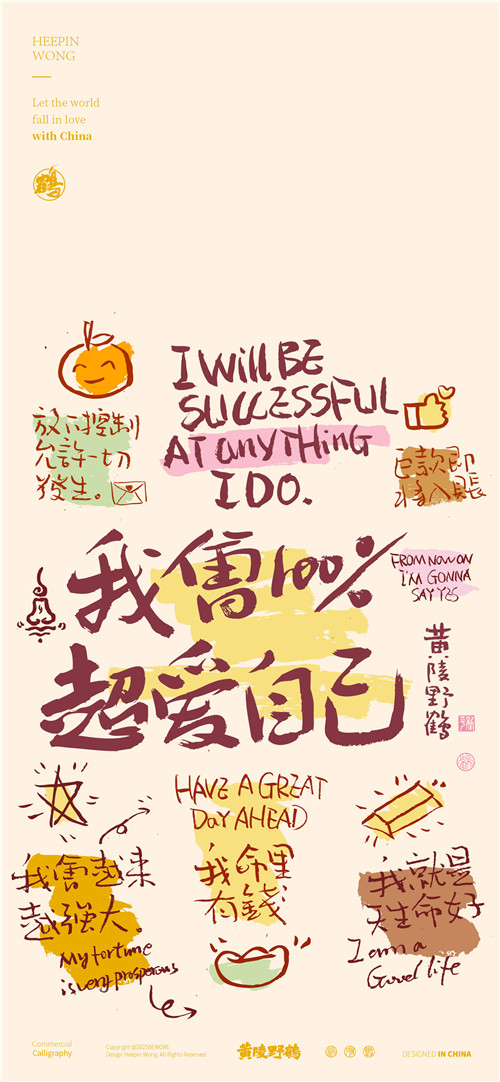 HEEPIN
WONG
Let the world
fall in love
with China
鶴
I Will BE
SUCCESSFUL
AT anyTHinG
I DO.
放下控制
允許一切
發生。
巨款即
將入賬
我會100%
超爱自己
FROM NOW ON
I'M GONNA
SAY YES
黄陵野鶴
HAVE A GREAT
Day AHEAD
我會越来
越強大。
My fortune
is very prosperous
我命里
有錢
我就是
天生命好
I am a
Good life
Commercial
Calligraphy
Copyright @2025BEWORE
Design Heepin Wong. All Rights Reserved
黄陵野鶴
DESIGNED IN CHINA